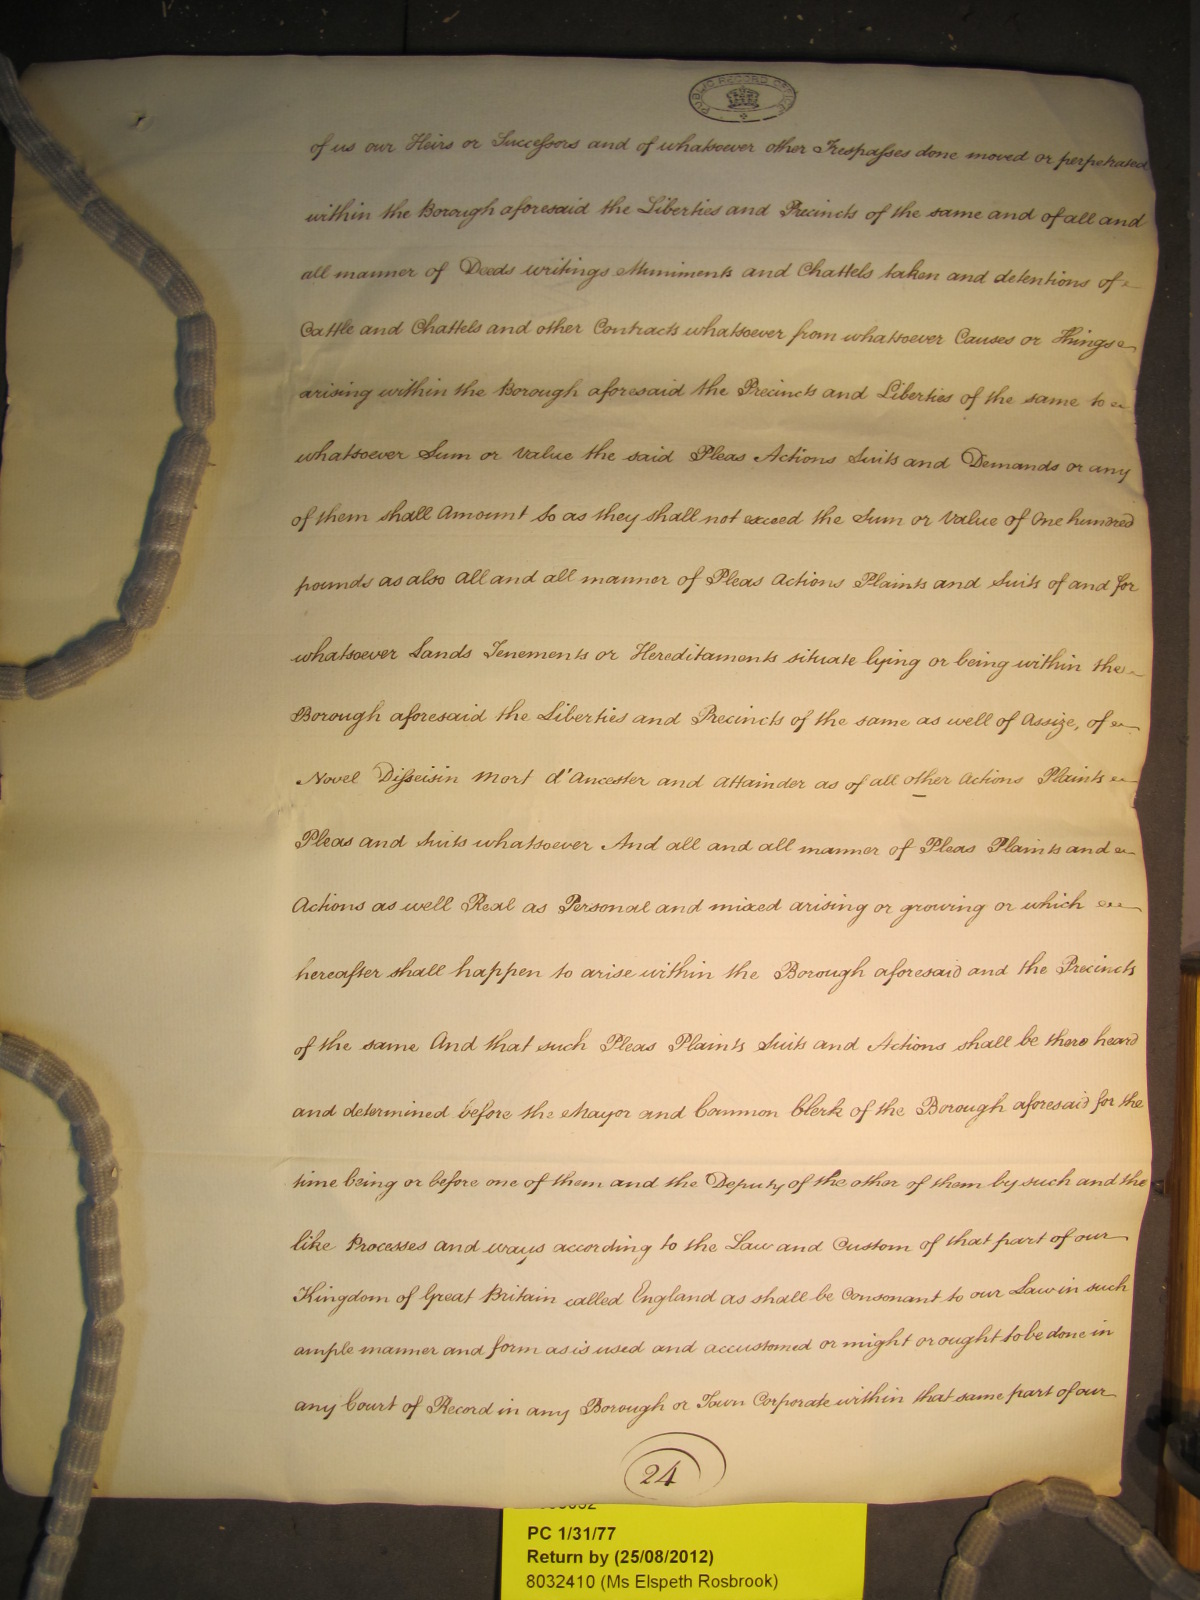 PUBLIC RECORD OFFICE
of us our Heirs or Successors and of whatsoever other Trespasses done moved or perpetrated
within the Borough aforesaid the Liberties and Precincts of the same and of all and
all manner of Deeds writings Muniments and Chattels taken and detentions of
Cattle and Chattels and other Contracts whatsoever from whatsoever Causes or things
arising within the Borough aforesaid the Precincts and Liberties of the same to
whatsoever Sum or Value the said Pleas Actions Suits and Demands or any
of them shall Amount So as they shall not exceed the Sum or Value of One hundred
pounds as also All and all manner of Pleas Actions Plaints and Suits of and for
whatsoever Lands Tenements or Hereditaments situate lying or being within the
Borough aforesaid the Liberties and Precincts of the same as well of Assize, of
Novel Disseisin Mort d'Ancester and Attainder as of all other Actions Plaints
Pleas and Suits whatsoever And all and all manner of Pleas Plaints and
Actions as well Real as Personal and mixed arising or growing or which
hereafter shall happen to arise within the Borough aforesaid and the Precincts
of the same And that such Pleas Plaints Suits and Actions shall be there heard
and determined before the Mayor and Common Clerk of the Borough aforesaid for the
time being or before one of them and the Deputy of the other of them by such and the
like Processes and ways according to the Law and Custom of that part of our
Kingdom of Great Britain called England as shall be Consonant to our Law in such
ample manner and form as is used and accustomed or might or ought to be done in
any Court of Record in any Borough or Town Corporate within that same part of our
24
PC 1/31/77
Return by (25/08/2012)
8032410 (Ms Elspeth Rosbrook)